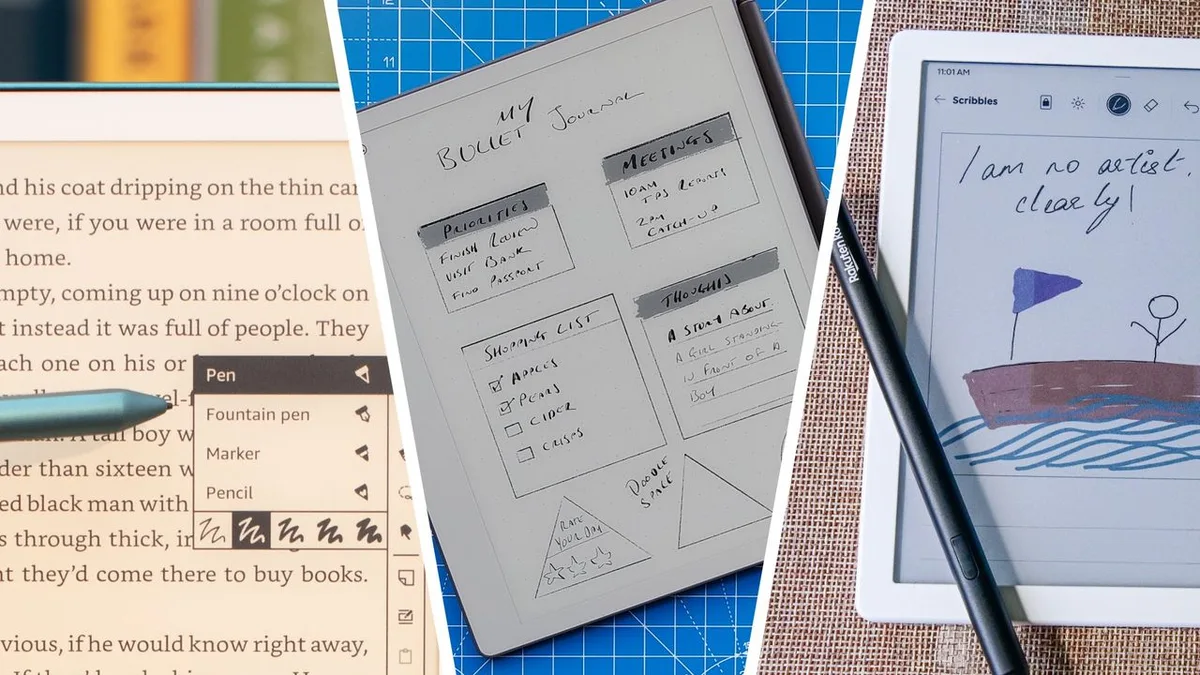 nd his coat dripping on the thin car
were, if you were in a room full o
home.
mpty, coming up on nine o'clock on
t instead it was full of people. They
ach one on his or
Pen
Fountain pen
Marker
Pencil
tall boy w
der than sixteen w
ed black man with
s through thick, in
nt they'd come there to buy books.
vious, if he would know right away,
11
MY
BULLET JOURNAL
PRIORITIES
FINISH REVIEW
VISIT BANK
FIND PASSPORT
MEETINGS
10AM
TPS REPORTS
2PM
CATCH-UP
SHOPPING LIST
APPLES
PEARS
CIDER
CRISPS
THOUGHTS
A STORY ABOUT
A GIRL STANDING
IN FRONT OF A
BOY
DOODLE
SPACE
RATE
YOUR DAY
Rakuten ko
11:01 AM
Scribbles
I am no artist.
clearly!